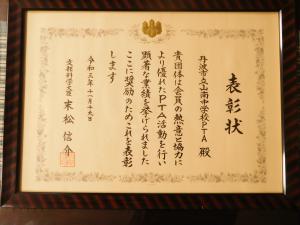 表彰状
丹波市立山南中学校PTA 殿
貴団体は会員の熱意と協力に
より優れたPTA活動を行い
顕著な業績を挙げられました
ここに奨励のためこれを表彰
します
令和三年十一月十九日
文部科学大臣 末松信介